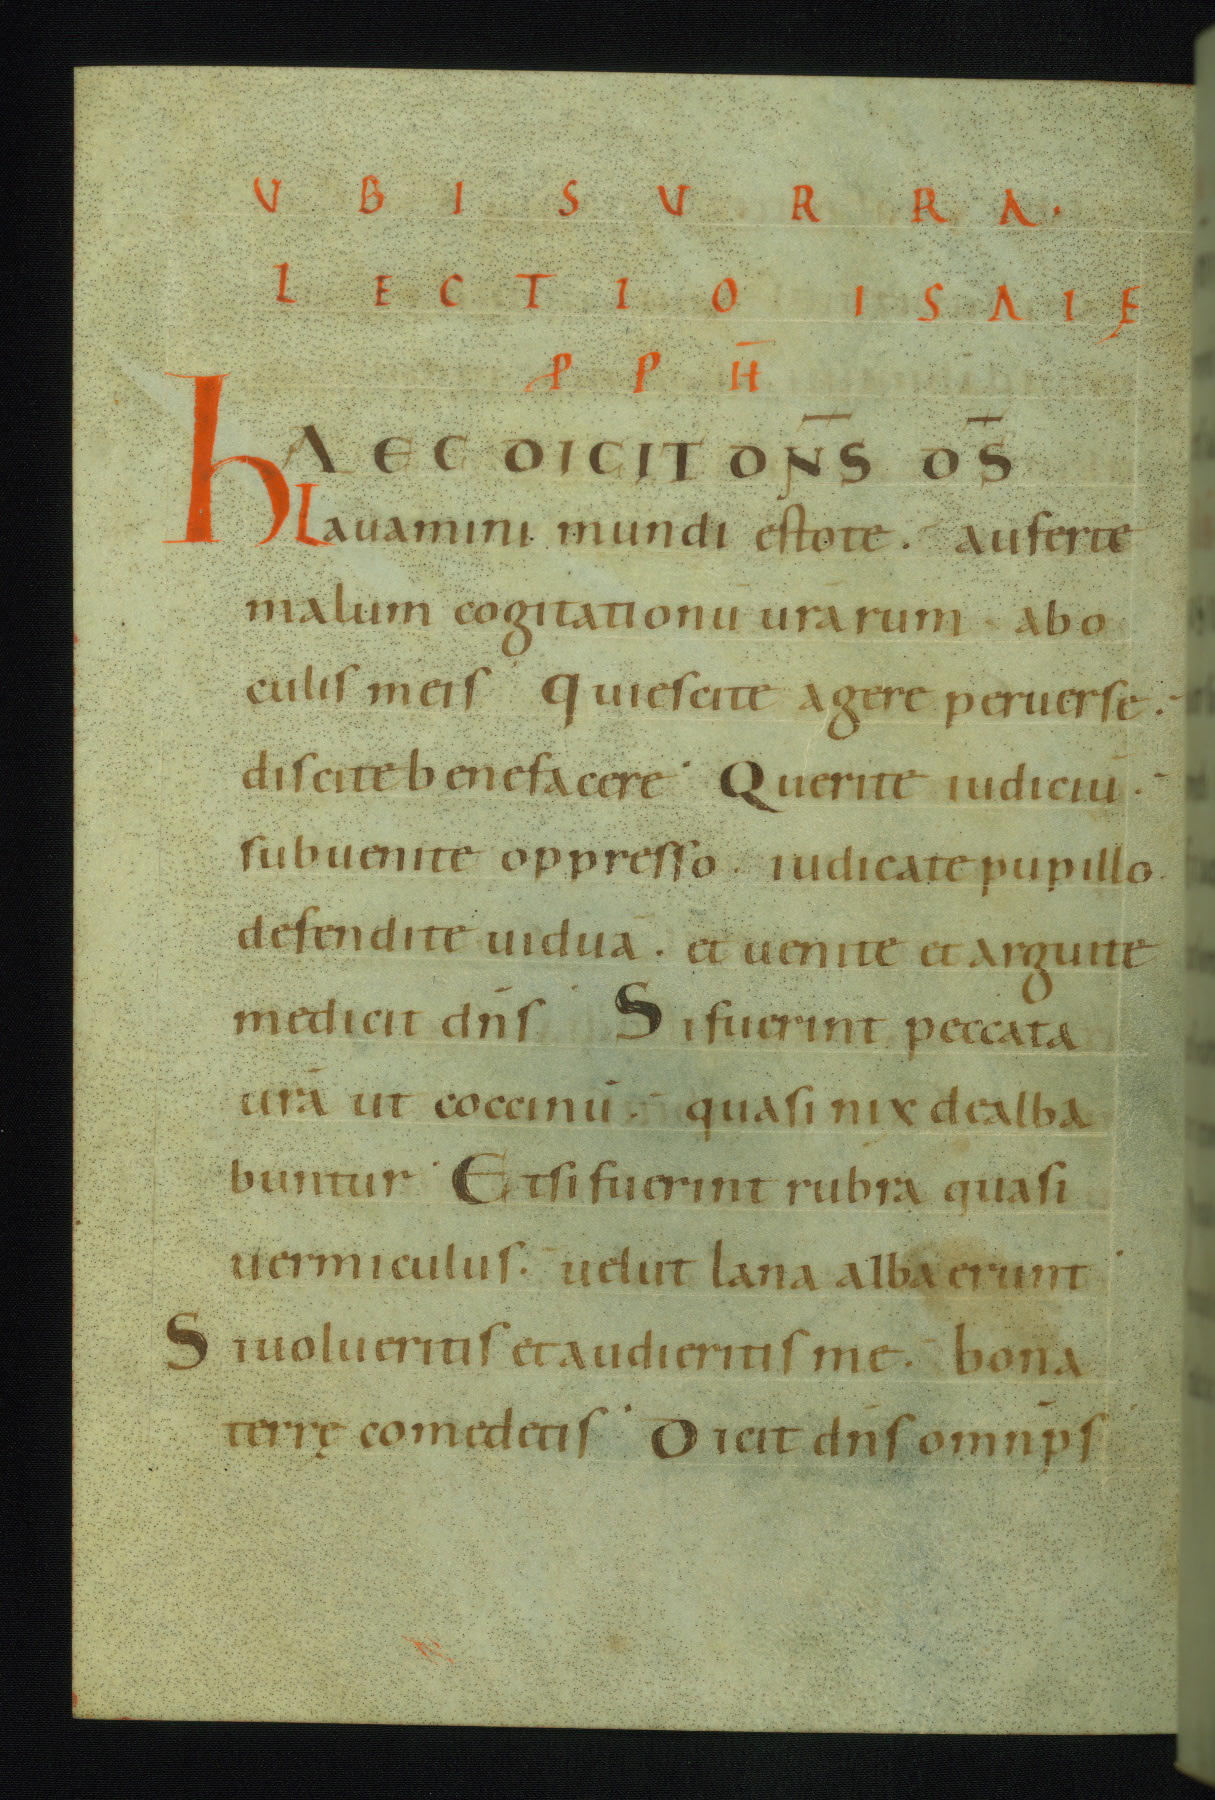 UBI SURRA.
LECTIO ISAIĘ
PPH̄
HAEC DICIT DN̄S DS̄
Lauamini mundi estote. auferte
malum cogitationū ur̄arum abo
culis meis Quiescite agere peruerse.
discite benefacere Querite iudiciū.
subuenite oppresso. iudicate pupillo.
defendite uiduā. et uenite et arguite
me dicit dn̄s Si fuerint peccata
ur̄a ut coccinū. quasi nix dealba
buntur Et si fuerint rubra quasi
uermiculus. uelut lana alba erunt
Si uolueritis et audieritis me. bona
terrę comedetis Dicit dn̄s omnip̄s